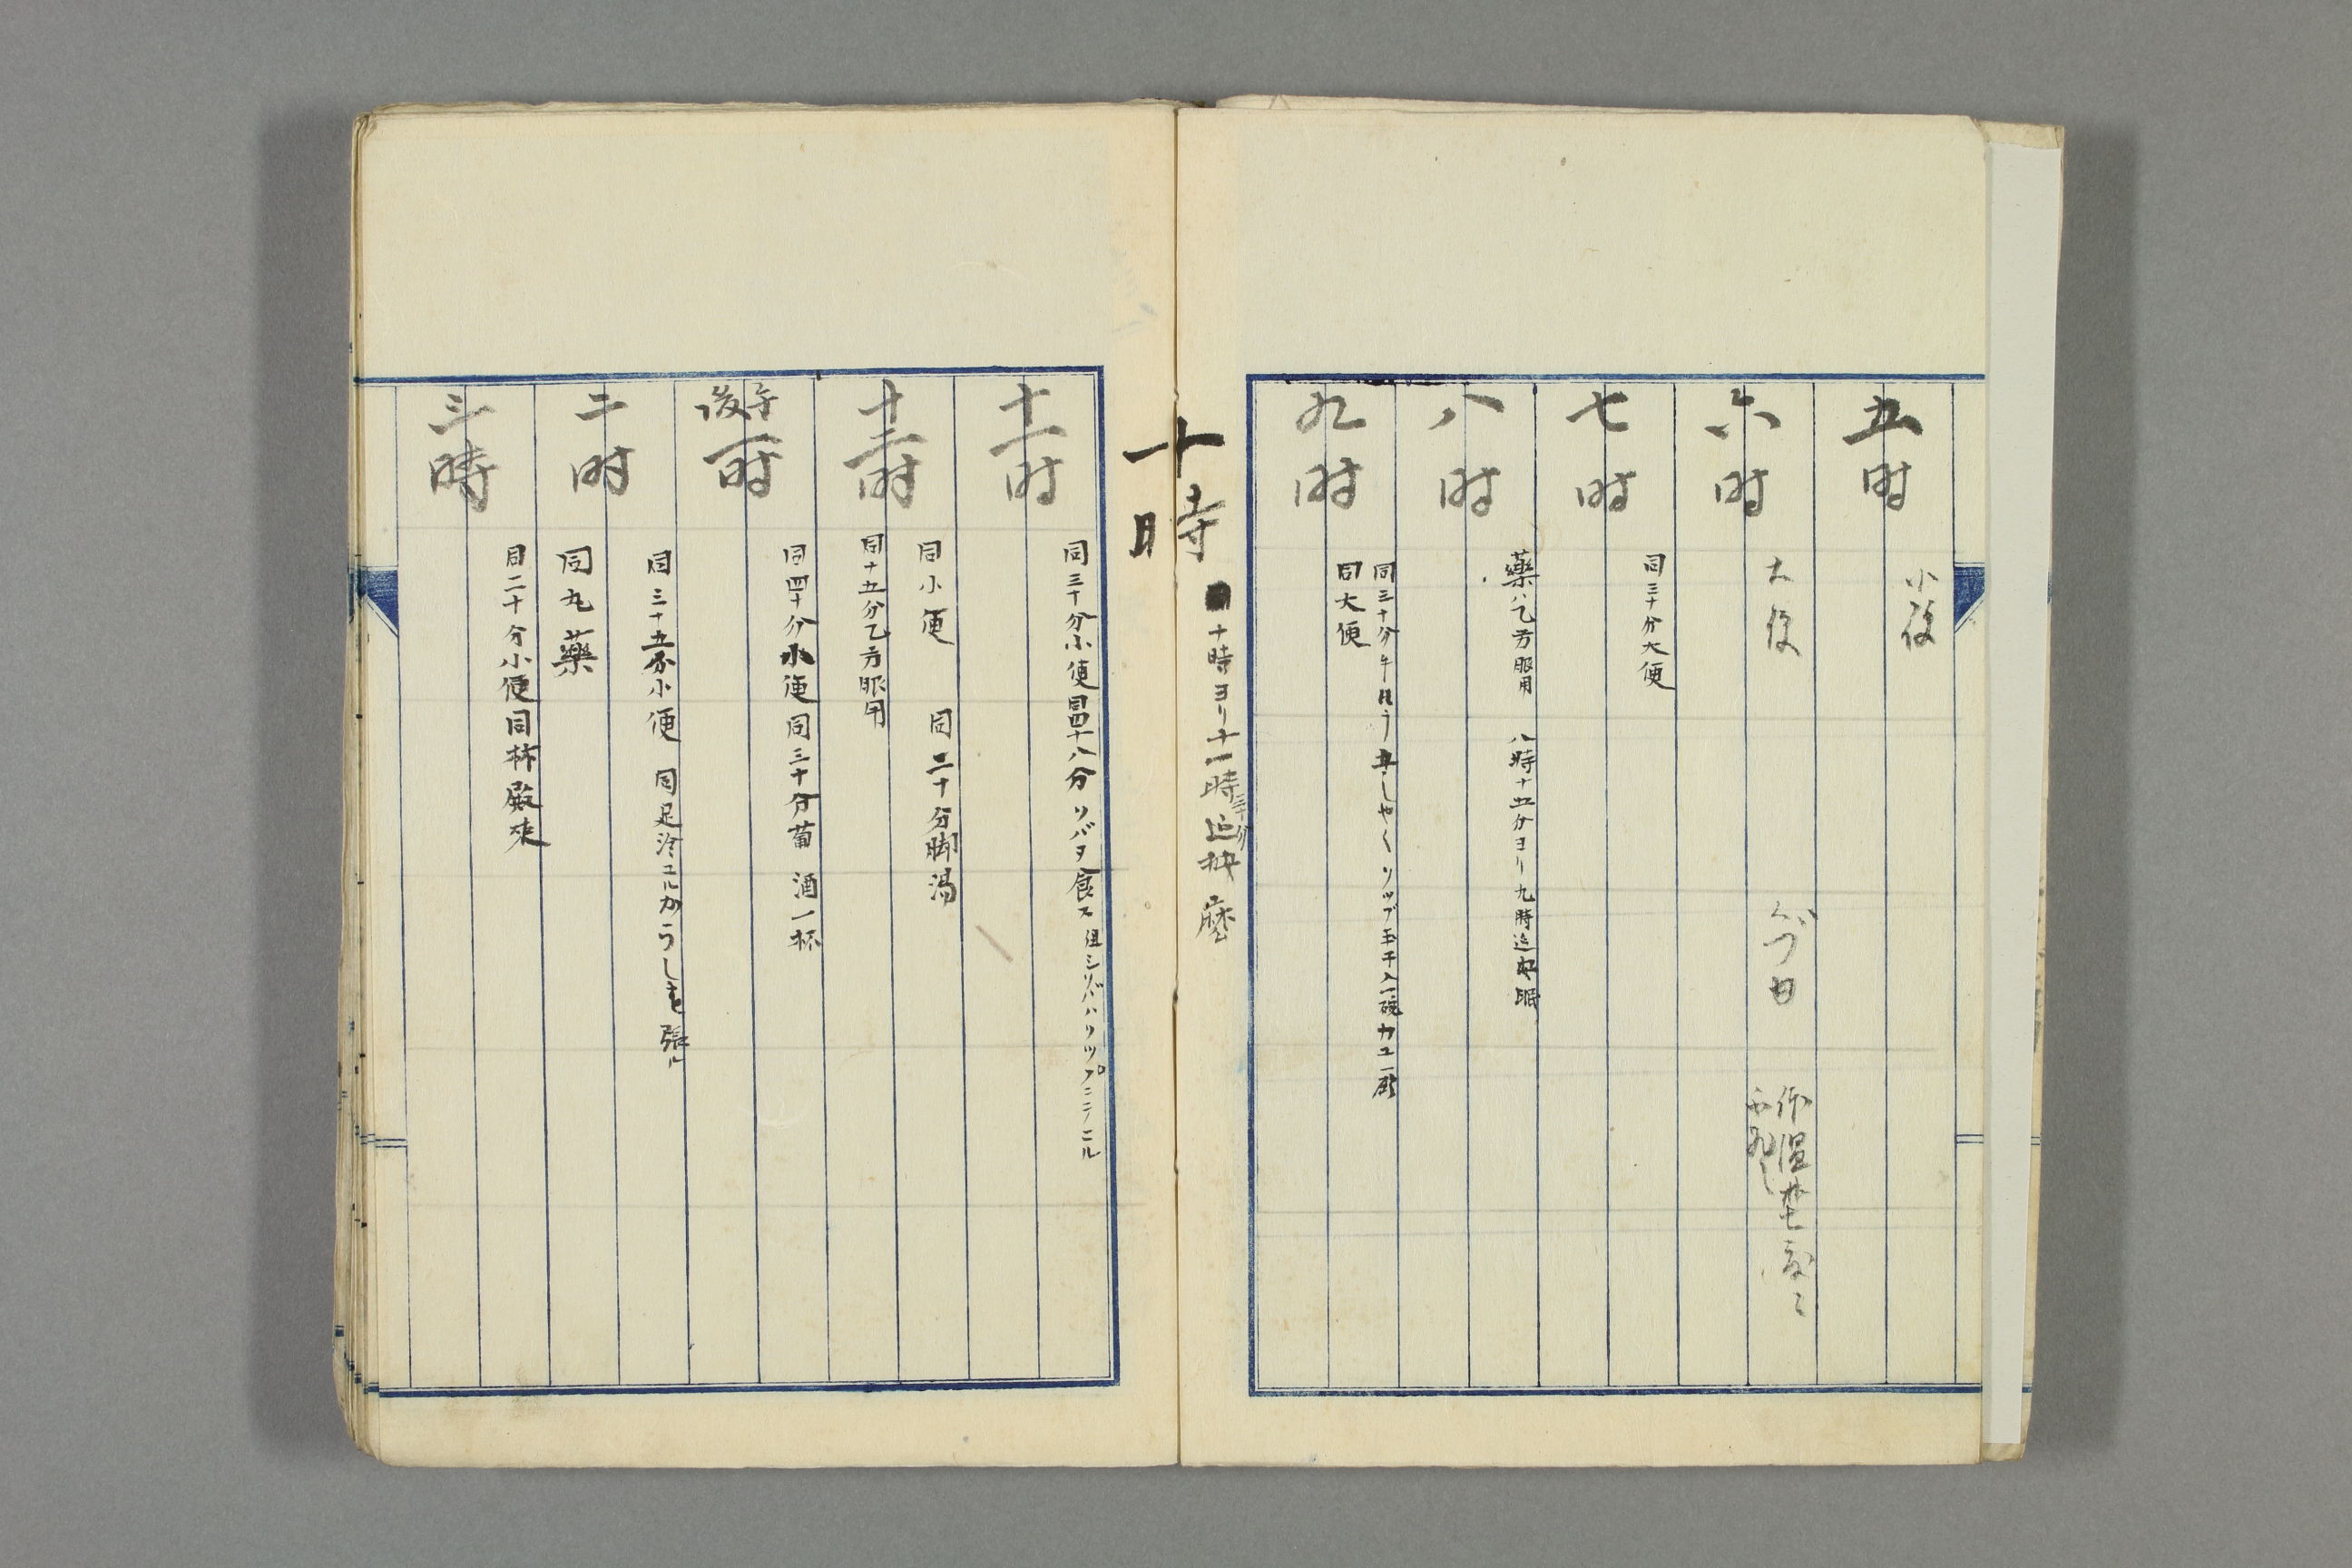 五时
小便
六时
大便
七时
同三十分大便
八时
藥ハ乙方服用 八時十五分ヨリ九時迄安眠
九时
同三十分牛にう五しやくソップ玉子入一碗カユ一碗
同大便
十時
十時ヨリ十一時三十分迄按摩
十一时
同三十分小便同四十八分ソバヲ食ス但シソバハソップニテニル
十二时
同小便 同二十分脚湯
同十五分乙方服用
午後一时
同四十分小便同三十分葡酒一杯
二时
同三十五分小便 同足冷エルからしを張ル
同丸藥
三時
同二十分小便同林殿來